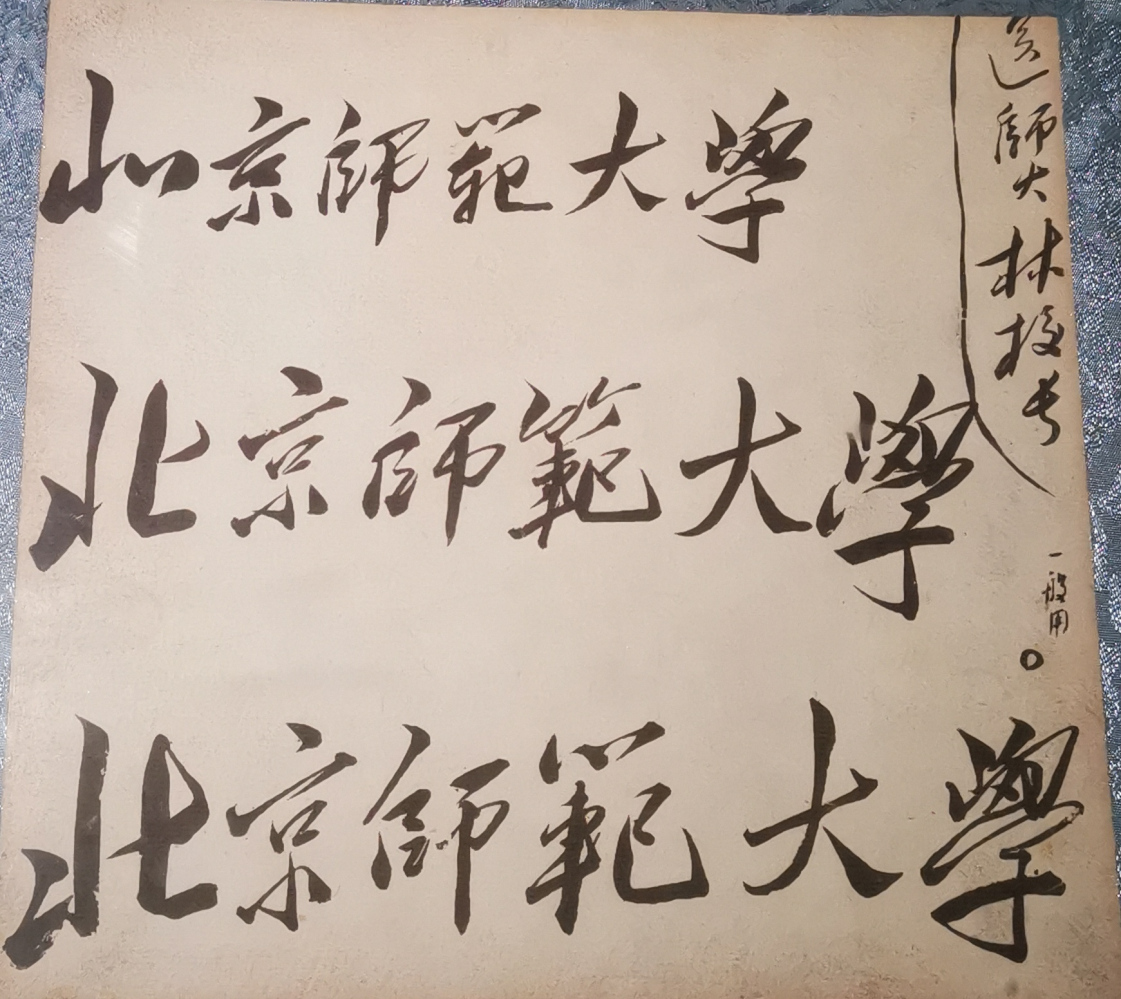 北京師範大學
北京師範大學
北京師範大學
送師大林校長
一般用